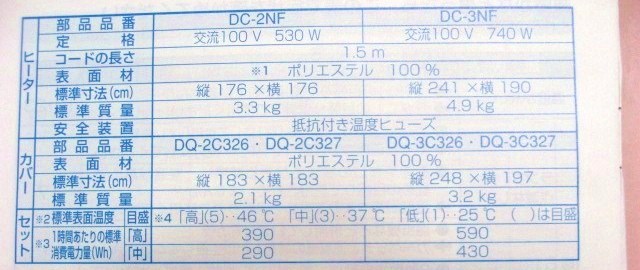 部品品番 DC-2NF DC-3NF
定格 交流100V 530W 交流100V 740W
ヒーター コードの長さ 1.5m
表面材 ※1 ポリエステル 100%
標準寸法(cm) 縦176×横176 縦241×横190
標準質量 3.3kg 4.9kg
安全装置 抵抗付き温度ヒューズ
カバー 部品品番 DQ-2C326・DQ-2C327 DQ-3C326・DQ-3C327
表面材 ポリエステル 100%
標準寸法(cm) 縦183×横183 縦248×横197
標準質量 2.1kg 3.2kg
セット ※2標準表面温度 目盛 ※4「高」(5)‥46℃ 「中」(3)‥37℃ 「低」(1)‥25℃ ( )は目盛
※3 1時間あたりの標準 「高」 390 590
消費電力量(Wh) 「中」 290 430